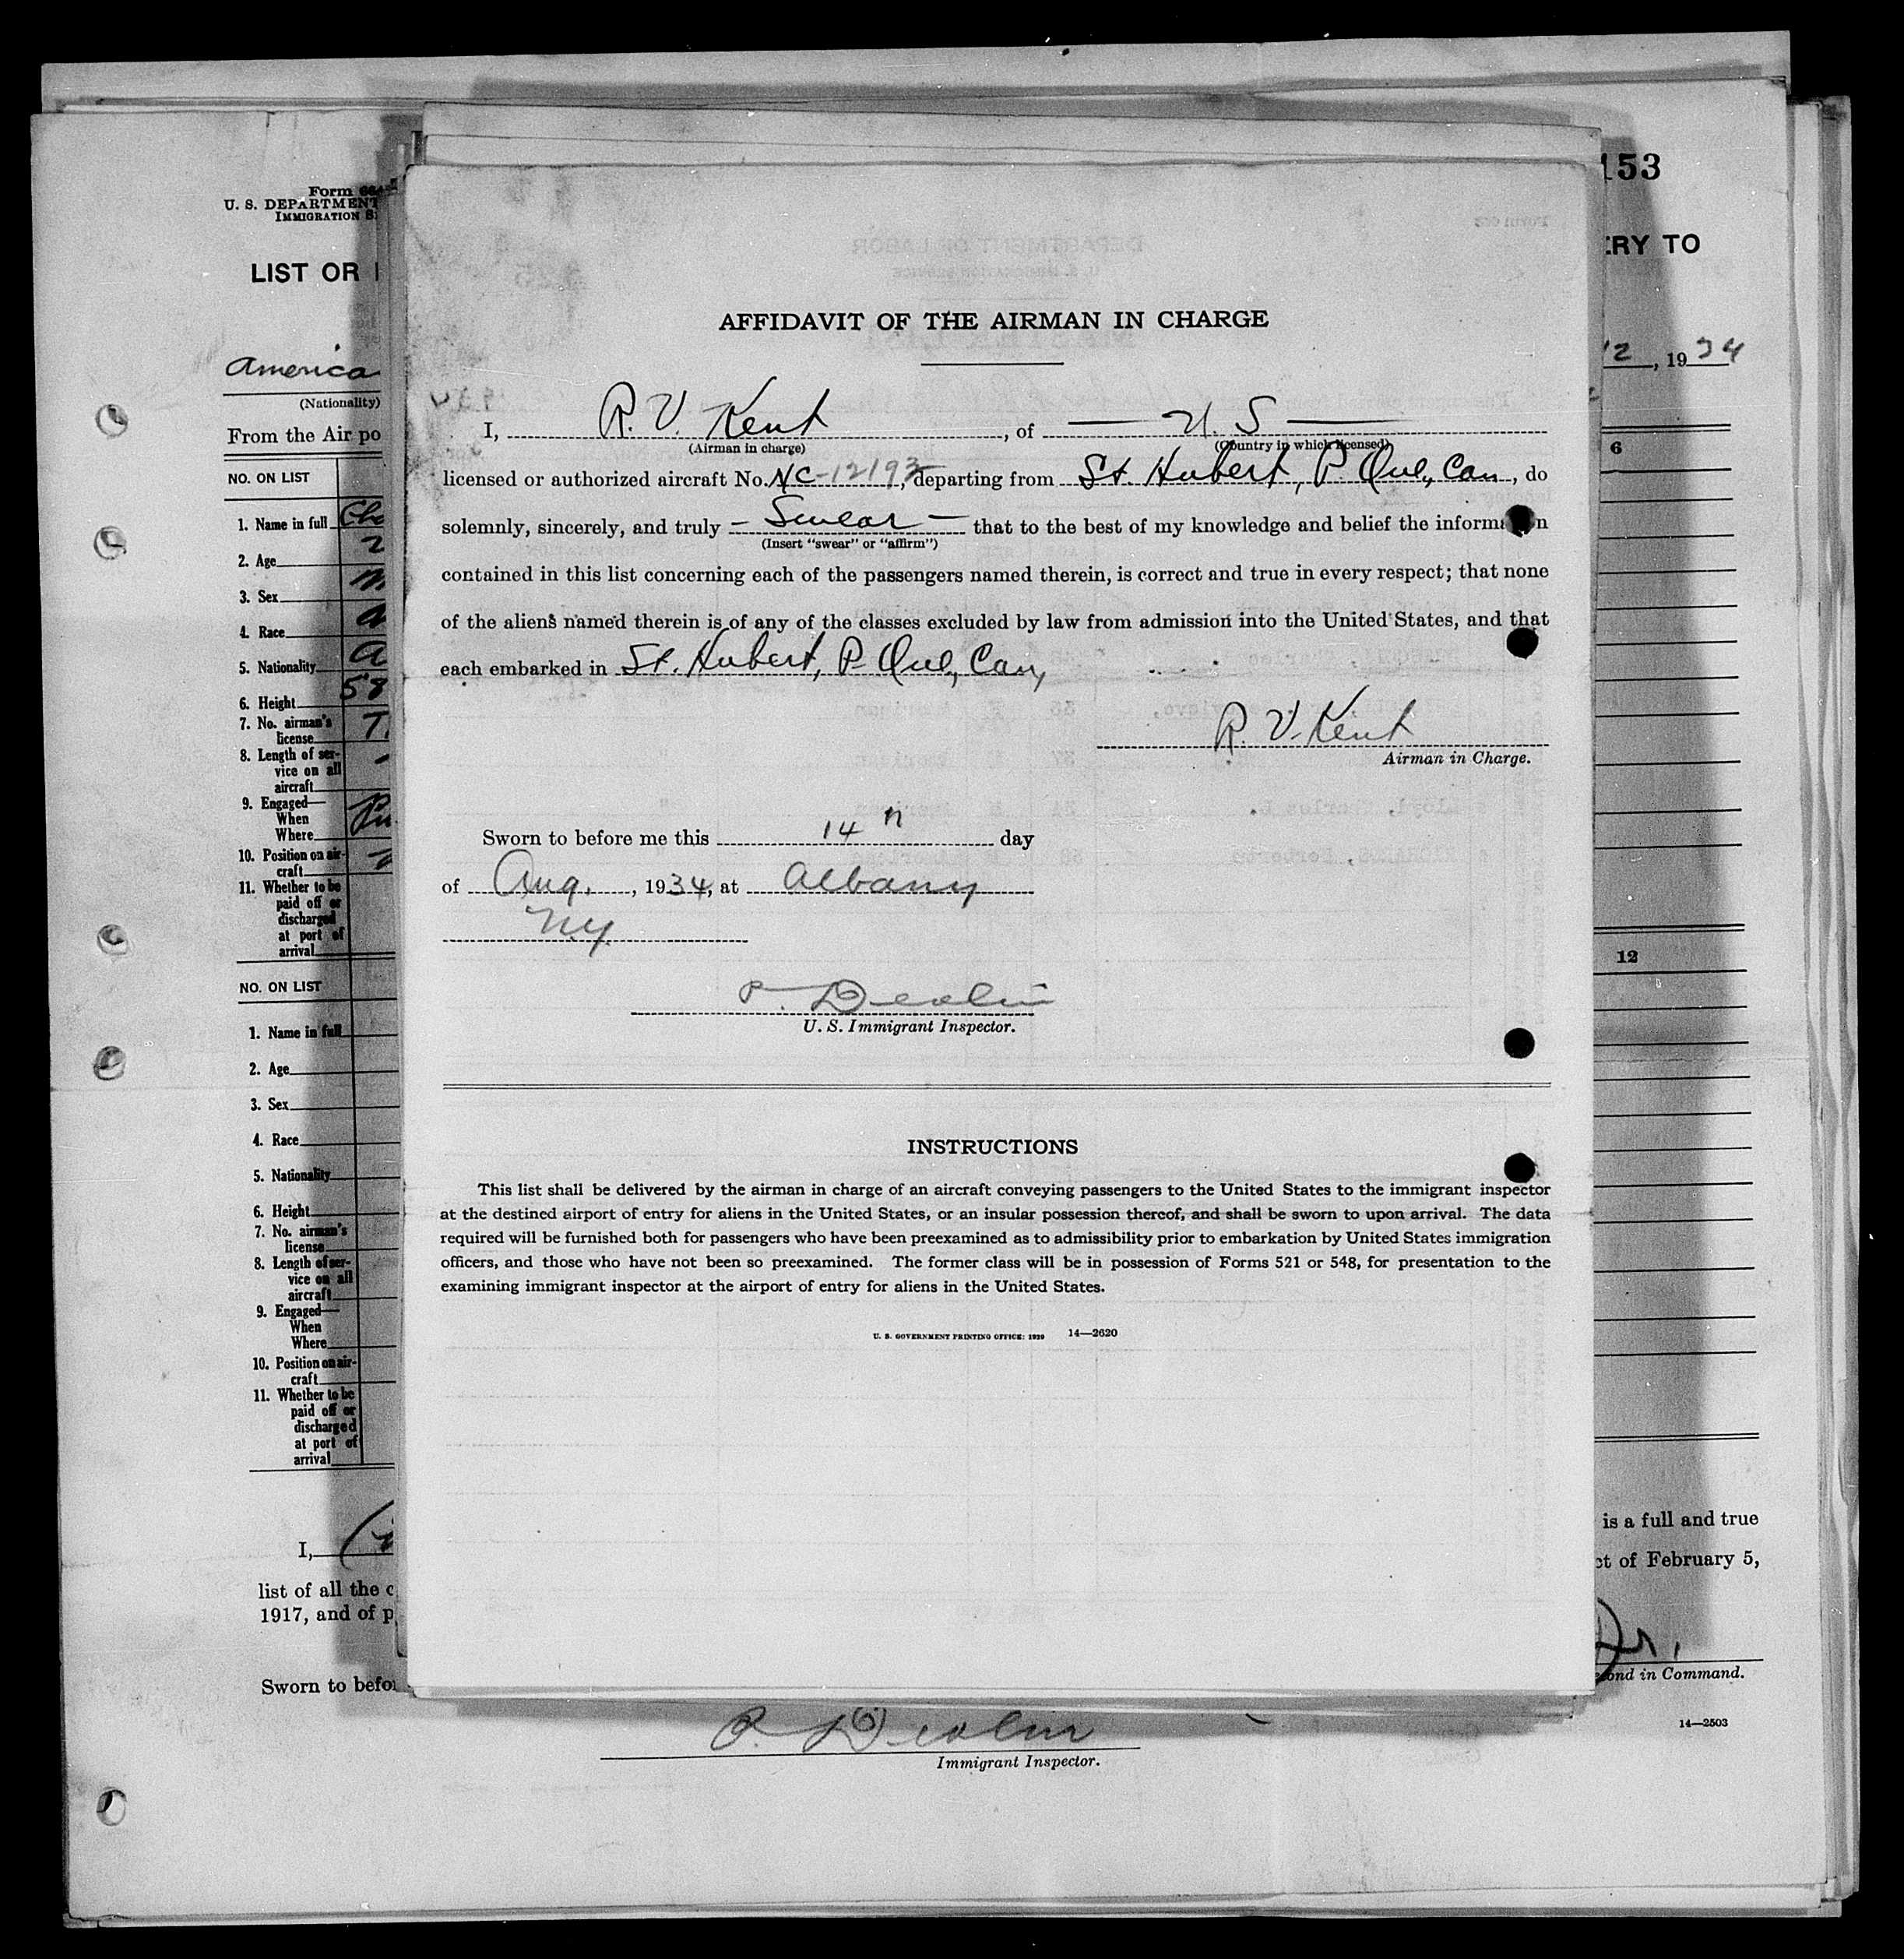 Form
U. S. DEPARTMENT
IMMIGRATION S
LIST OR
America
(Nationality)
From the Air po
NO. ON LIST
1. Name in full
2. Age
3. Sex
4. Race
5. Nationality
6. Height
58
7. No. airman's
license
8. Length of ser-
vice on all
aircraft
9. Engaged—
When
Where
10. Position on air-
craft
11. Whether to be
paid off or
discharged
at port of
arrival
NO. ON LIST
1. Name in full
2. Age
3. Sex
4. Race
5. Nationality
6. Height
7. No. airman's
license
8. Length of ser-
vice on all
aircraft
9. Engaged—
When
Where
10. Position on air-
craft
11. Whether to be
paid off or
discharged
at port of
arrival
I,
list of all the c
1917, and of p
Sworn to befor
AFFIDAVIT OF THE AIRMAN IN CHARGE
I, R. V. Kent, of — U. S —
(Airman in charge) (Country in which licensed)
licensed or authorized aircraft No. NC-12193, departing from St. Hubert, P. Que, Can, do
solemnly, sincerely, and truly - Swear - that to the best of my knowledge and belief the information
(Insert "swear" or "affirm")
contained in this list concerning each of the passengers named therein, is correct and true in every respect; that none
of the aliens named therein is of any of the classes excluded by law from admission into the United States, and that
each embarked in St. Hubert, P. Que, Can,
R. V. Kent
Airman in Charge.
Sworn to before me this 14 day
of Aug., 1934, at Albany
N.Y.
P. Devlin
U. S. Immigrant Inspector.
INSTRUCTIONS
This list shall be delivered by the airman in charge of an aircraft conveying passengers to the United States to the immigrant inspector
at the destined airport of entry for aliens in the United States, or an insular possession thereof, and shall be sworn to upon arrival. The data
required will be furnished both for passengers who have been preexamined as to admissibility prior to embarkation by United States immigration
officers, and those who have not been so preexamined. The former class will be in possession of Forms 521 or 548, for presentation to the
examining immigrant inspector at the airport of entry for aliens in the United States.
U. S. GOVERNMENT PRINTING OFFICE: 1929 14—2620
153
ERY TO
12, 1934
6
12
is a full and true
ct of February 5,
Jr.
ond in Command.
14—2503
P. Devlin
Immigrant Inspector.